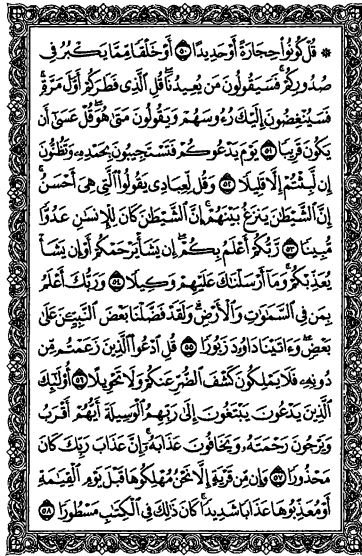 ۞ قُلْ كُونُوا۟ حِجَارَةً أَوْ حَدِيدًا ۝٥٠ أَوْ خَلْقًا مِّمَّا يَكْبُرُ فِى
صُدُورِكُمْ ۚ فَسَيَقُولُونَ مَن يُعِيدُنَا ۖ قُلِ ٱلَّذِى فَطَرَكُمْ أَوَّلَ مَرَّةٍ ۚ
فَسَيُنْغِضُونَ إِلَيْكَ رُءُوسَهُمْ وَيَقُولُونَ مَتَىٰ هُوَ ۖ قُلْ عَسَىٰٓ أَن
يَكُونَ قَرِيبًا ۝٥١ يَوْمَ يَدْعُوكُمْ فَتَسْتَجِيبُونَ بِحَمْدِهِۦ وَتَظُنُّونَ
إِن لَّبِثْتُمْ إِلَّا قَلِيلًا ۝٥٢ وَقُل لِّعِبَادِى يَقُولُوا۟ ٱلَّتِى هِىَ أَحْسَنُ ۚ
إِنَّ ٱلشَّيْطَـٰنَ يَنزَغُ بَيْنَهُمْ ۚ إِنَّ ٱلشَّيْطَـٰنَ كَانَ لِلْإِنسَـٰنِ عَدُوًّا
مُّبِينًا ۝٥٣ رَّبُّكُمْ أَعْلَمُ بِكُمْ ۖ إِن يَشَأْ يَرْحَمْكُمْ أَوْ إِن يَشَأْ
يُعَذِّبْكُمْ ۚ وَمَآ أَرْسَلْنَـٰكَ عَلَيْهِمْ وَكِيلًا ۝٥٤ وَرَبُّكَ أَعْلَمُ
بِمَن فِى ٱلسَّمَـٰوَٰتِ وَٱلْأَرْضِ ۗ وَلَقَدْ فَضَّلْنَا بَعْضَ ٱلنَّبِيِّـۧنَ عَلَىٰ
بَعْضٍ ۖ وَءَاتَيْنَا دَاوُۥدَ زَبُورًا ۝٥٥ قُلِ ٱدْعُوا۟ ٱلَّذِينَ زَعَمْتُم مِّن
دُونِهِۦ فَلَا يَمْلِكُونَ كَشْفَ ٱلضُّرِّ عَنكُمْ وَلَا تَحْوِيلًا ۝٥٦ أُو۟لَـٰٓئِكَ
ٱلَّذِينَ يَدْعُونَ يَبْتَغُونَ إِلَىٰ رَبِّهِمُ ٱلْوَسِيلَةَ أَيُّهُمْ أَقْرَبُ
وَيَرْجُونَ رَحْمَتَهُۥ وَيَخَافُونَ عَذَابَهُۥٓ ۚ إِنَّ عَذَابَ رَبِّكَ كَانَ
مَحْذُورًا ۝٥٧ وَإِن مِّن قَرْيَةٍ إِلَّا نَحْنُ مُهْلِكُوهَا قَبْلَ يَوْمِ ٱلْقِيَـٰمَةِ
أَوْ مُعَذِّبُوهَا عَذَابًا شَدِيدًا ۚ كَانَ ذَٰلِكَ فِى ٱلْكِتَـٰبِ مَسْطُورًا ۝٥٨